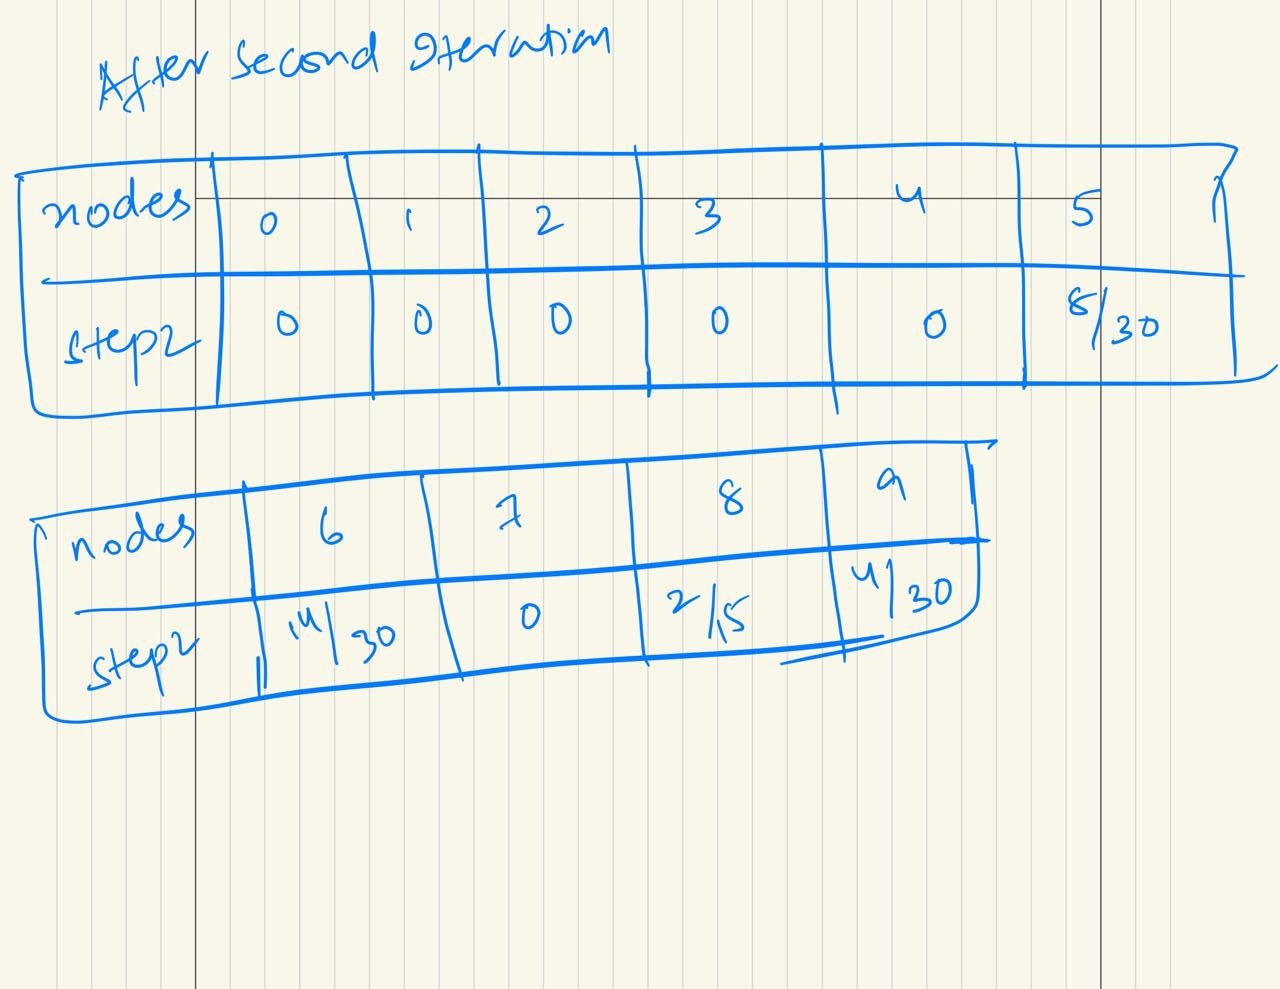 After second Iteration
nodes 0 1 2 3 4 5
step2 0 0 0 0 0 8/30
nodes 6 7 8 9
step2 14/30 0 2/15 4/30